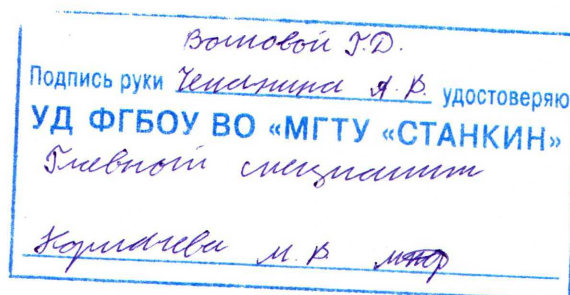 Волковой Г.Д.
Подпись руки Чеканина А.В. удостоверяю
УД ФГБОУ ВО «МГТУ «СТАНКИН»
Главный специалист
М.В.